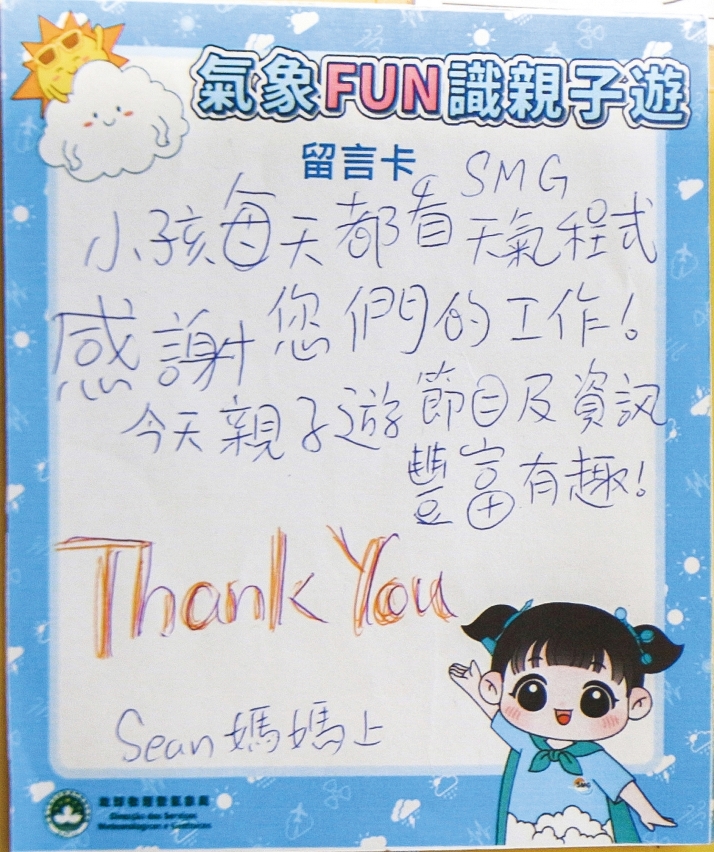 氣象FUN識親子遊
留言卡
SMG
小孩每天都看天氣程式
感謝您們的工作!
今天親子遊節目及資訊
豐富有趣!
Thank You
Sean媽媽上
地球物理暨氣象局
Direcção dos Serviços
Meteorológicos e Geofísicos